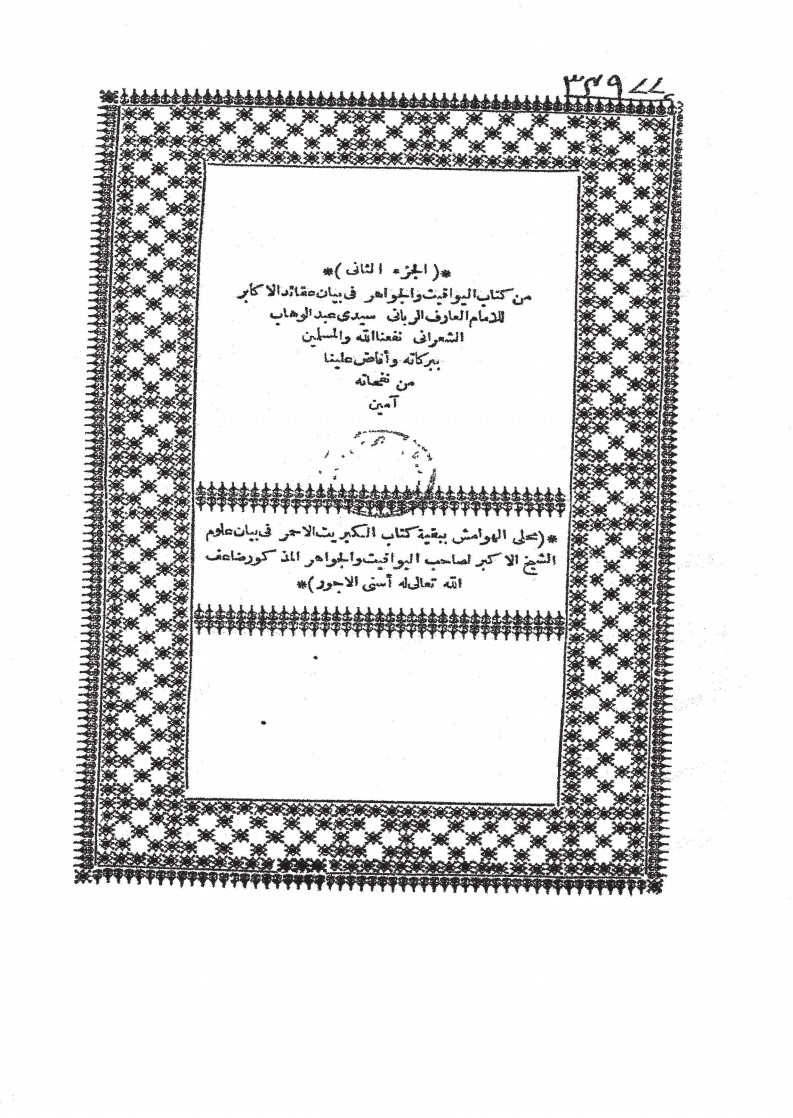 *(الجزء الثانى)*
من كتاب اليواقيت والجواهر فى بيان عقائد الاكابر
للامام العارف الربانى سيدى عبد الوهاب
الشعرانى نفعنا الله والمسلمين
ببركاته وأفاض علينا
من نفحاته
آمين
*(محلى الهوامش ببقية كتاب الكبريت الاحمر فى بيان علوم
الشيخ الاكبر لصاحب اليواقيت والجواهر المذكور ضاعف
الله تعالى له أسنى الاجور)*